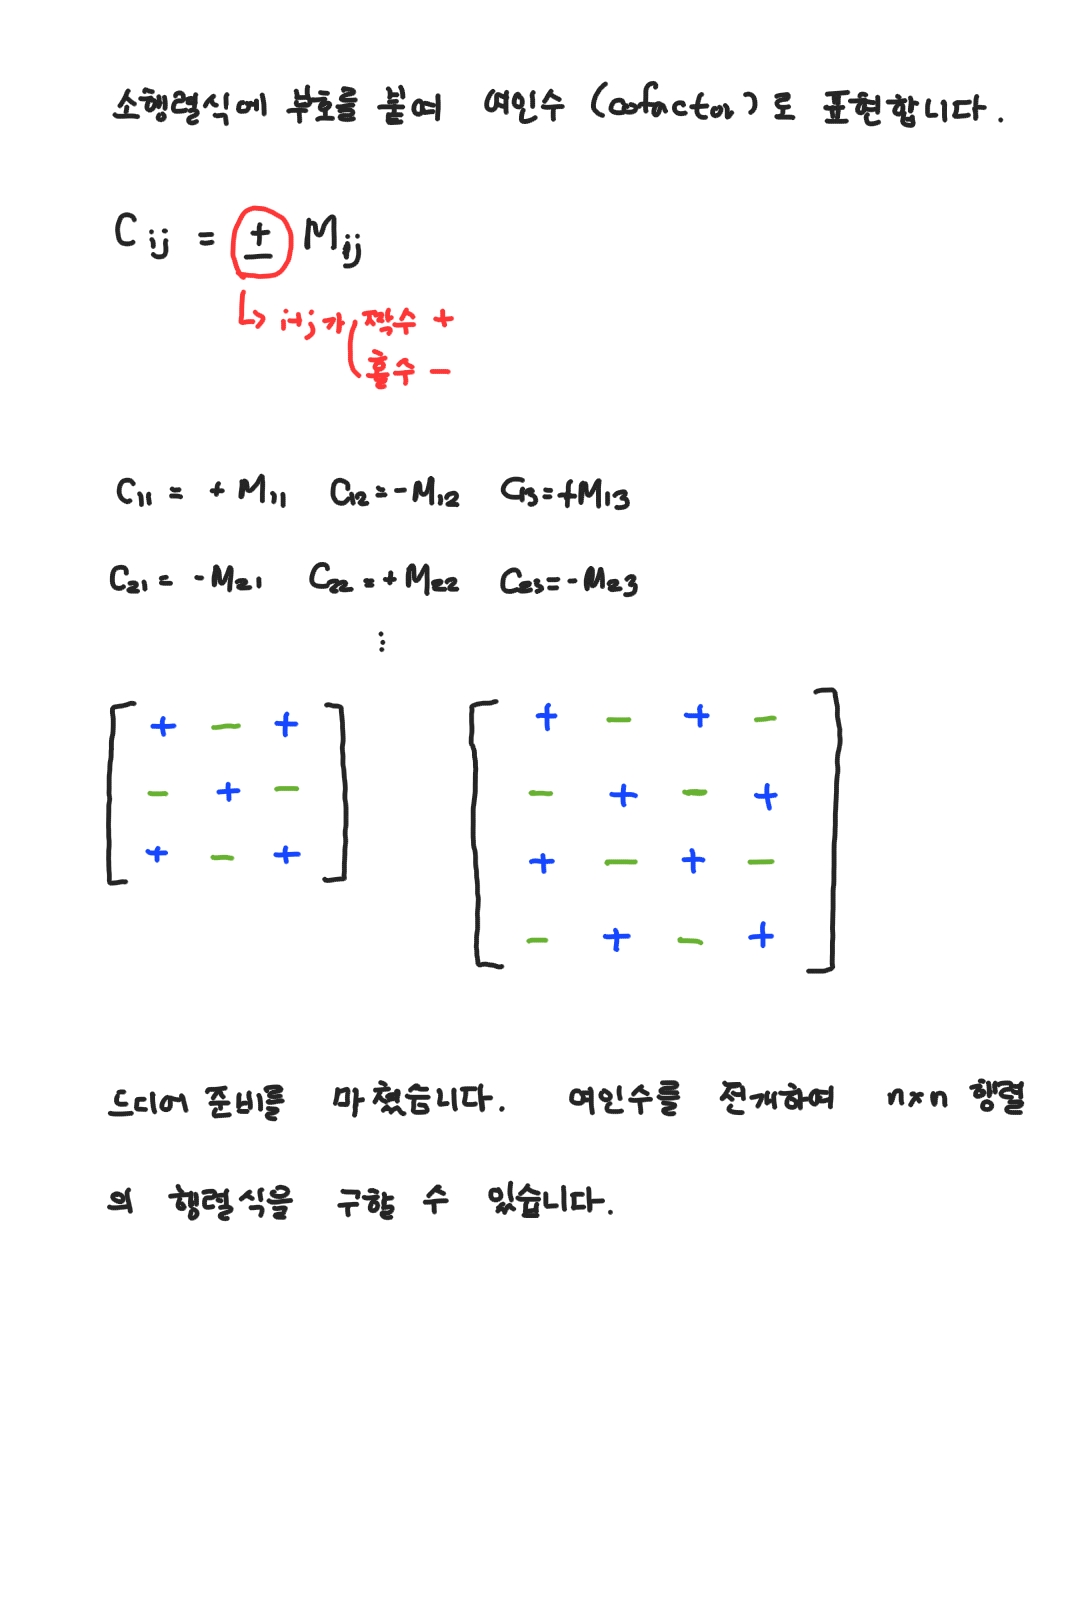 소행렬식에 부호를 붙여 여인수 (cofactor)로 표현합니다.
Cij = ± Mij
↳ i+j가 짝수 +
홀수 −
C11 = + M11 C12 = - M12 C13 = + M13
C21 = - M21 C22 = + M22 C23 = - M23
⋮
+ − + + − + −
− + − − + − +
+ − + + − + −
− + − +
드디어 준비를 마쳤습니다. 여인수를 전개하여 n×n 행렬
의 행렬식을 구할 수 있습니다.